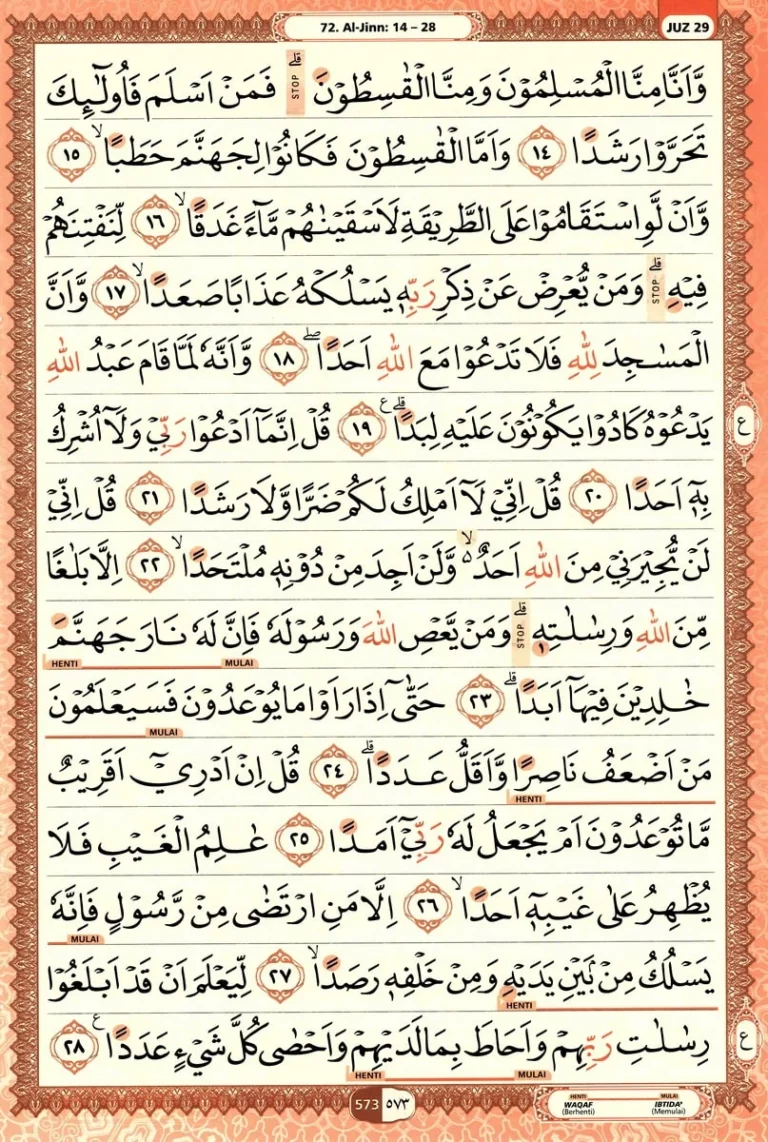 72. Al-Jinn: 14 – 28
JUZ 29
وَّاَنَّا مِنَّا الْمُسْلِمُوْنَ وَمِنَّا الْقٰسِطُوْنَۗ STOP فَمَنْ اَسْلَمَ فَاُولٰۤىِٕكَ
تَحَرَّوْا رَشَدًا ١٤ وَاَمَّا الْقٰسِطُوْنَ فَكَانُوْا لِجَهَنَّمَ حَطَبًاۙ ١٥
وَّاَنْ لَّوِ اسْتَقَامُوْا عَلَى الطَّرِيْقَةِ لَاَسْقَيْنٰهُمْ مَّاۤءً غَدَقًاۙ ١٦ لِّنَفْتِنَهُمْ
فِيْهِۗ STOP وَمَنْ يُّعْرِضْ عَنْ ذِكْرِ رَبِّهٖ يَسْلُكْهُ عَذَابًا صَعَدًاۙ ١٧ وَّاَنَّ
الْمَسٰجِدَ لِلّٰهِ فَلَا تَدْعُوْا مَعَ اللّٰهِ اَحَدًاۖ ١٨ وَّاَنَّهٗ لَمَّا قَامَ عَبْدُ اللّٰهِ
يَدْعُوْهُ كَادُوْا يَكُوْنُوْنَ عَلَيْهِ لِبَدًاۗ ع ١٩ قُلْ اِنَّمَآ اَدْعُوْا رَبِّيْ وَلَآ اُشْرِكُ
ع
بِهٖٓ اَحَدًا ٢٠ قُلْ اِنِّيْ لَآ اَمْلِكُ لَكُمْ ضَرًّا وَّلَا رَشَدًا ٢١ قُلْ اِنِّيْ
لَنْ يُّجِيْرَنِيْ مِنَ اللّٰهِ اَحَدٌ ەۙ وَّلَنْ اَجِدَ مِنْ دُوْنِهٖ مُلْتَحَدًاۙ ٢٢ اِلَّا بَلٰغًا
مِّنَ اللّٰهِ وَرِسٰلٰتِهٖۗ STOP وَمَنْ يَّعْصِ اللّٰهَ وَرَسُوْلَهٗ فَاِنَّ لَهٗ نَارَ جَهَنَّمَ
HENTI MULAI
خٰلِدِيْنَ فِيْهَآ اَبَدًاۗ ٢٣ حَتّٰىٓ اِذَا رَاَوْا مَا يُوْعَدُوْنَ فَسَيَعْلَمُوْنَ
MULAI
مَنْ اَضْعَفُ نَاصِرًا وَّاَقَلُّ عَدَدًاۗ ٢٤ قُلْ اِنْ اَدْرِيْٓ اَقَرِيْبٌ
HENTI
مَّا تُوْعَدُوْنَ اَمْ يَجْعَلُ لَهٗ رَبِّيْٓ اَمَدًا ٢٥ عٰلِمُ الْغَيْبِ فَلَا
يُظْهِرُ عَلٰى غَيْبِهٖٓ اَحَدًاۙ ٢٦ اِلَّا مَنِ ارْتَضٰى مِنْ رَّسُوْلٍ فَاِنَّهٗ
MULAI
يَسْلُكُ مِنْۢ بَيْنِ يَدَيْهِ وَمِنْ خَلْفِهٖ رَصَدًاۙ ٢٧ لِّيَعْلَمَ اَنْ قَدْ اَبْلَغُوْا
HENTI
رِسٰلٰتِ رَبِّهِمْ وَاَحَاطَ بِمَا لَدَيْهِمْ وَاَحْصٰى كُلَّ شَيْءٍ عَدَدًا ع ٢٨
ع
HENTI MULAI
573 ٥٧٣
HENTI MULAI
WAQAF IBTIDA'
(Berhenti) (Memulai)